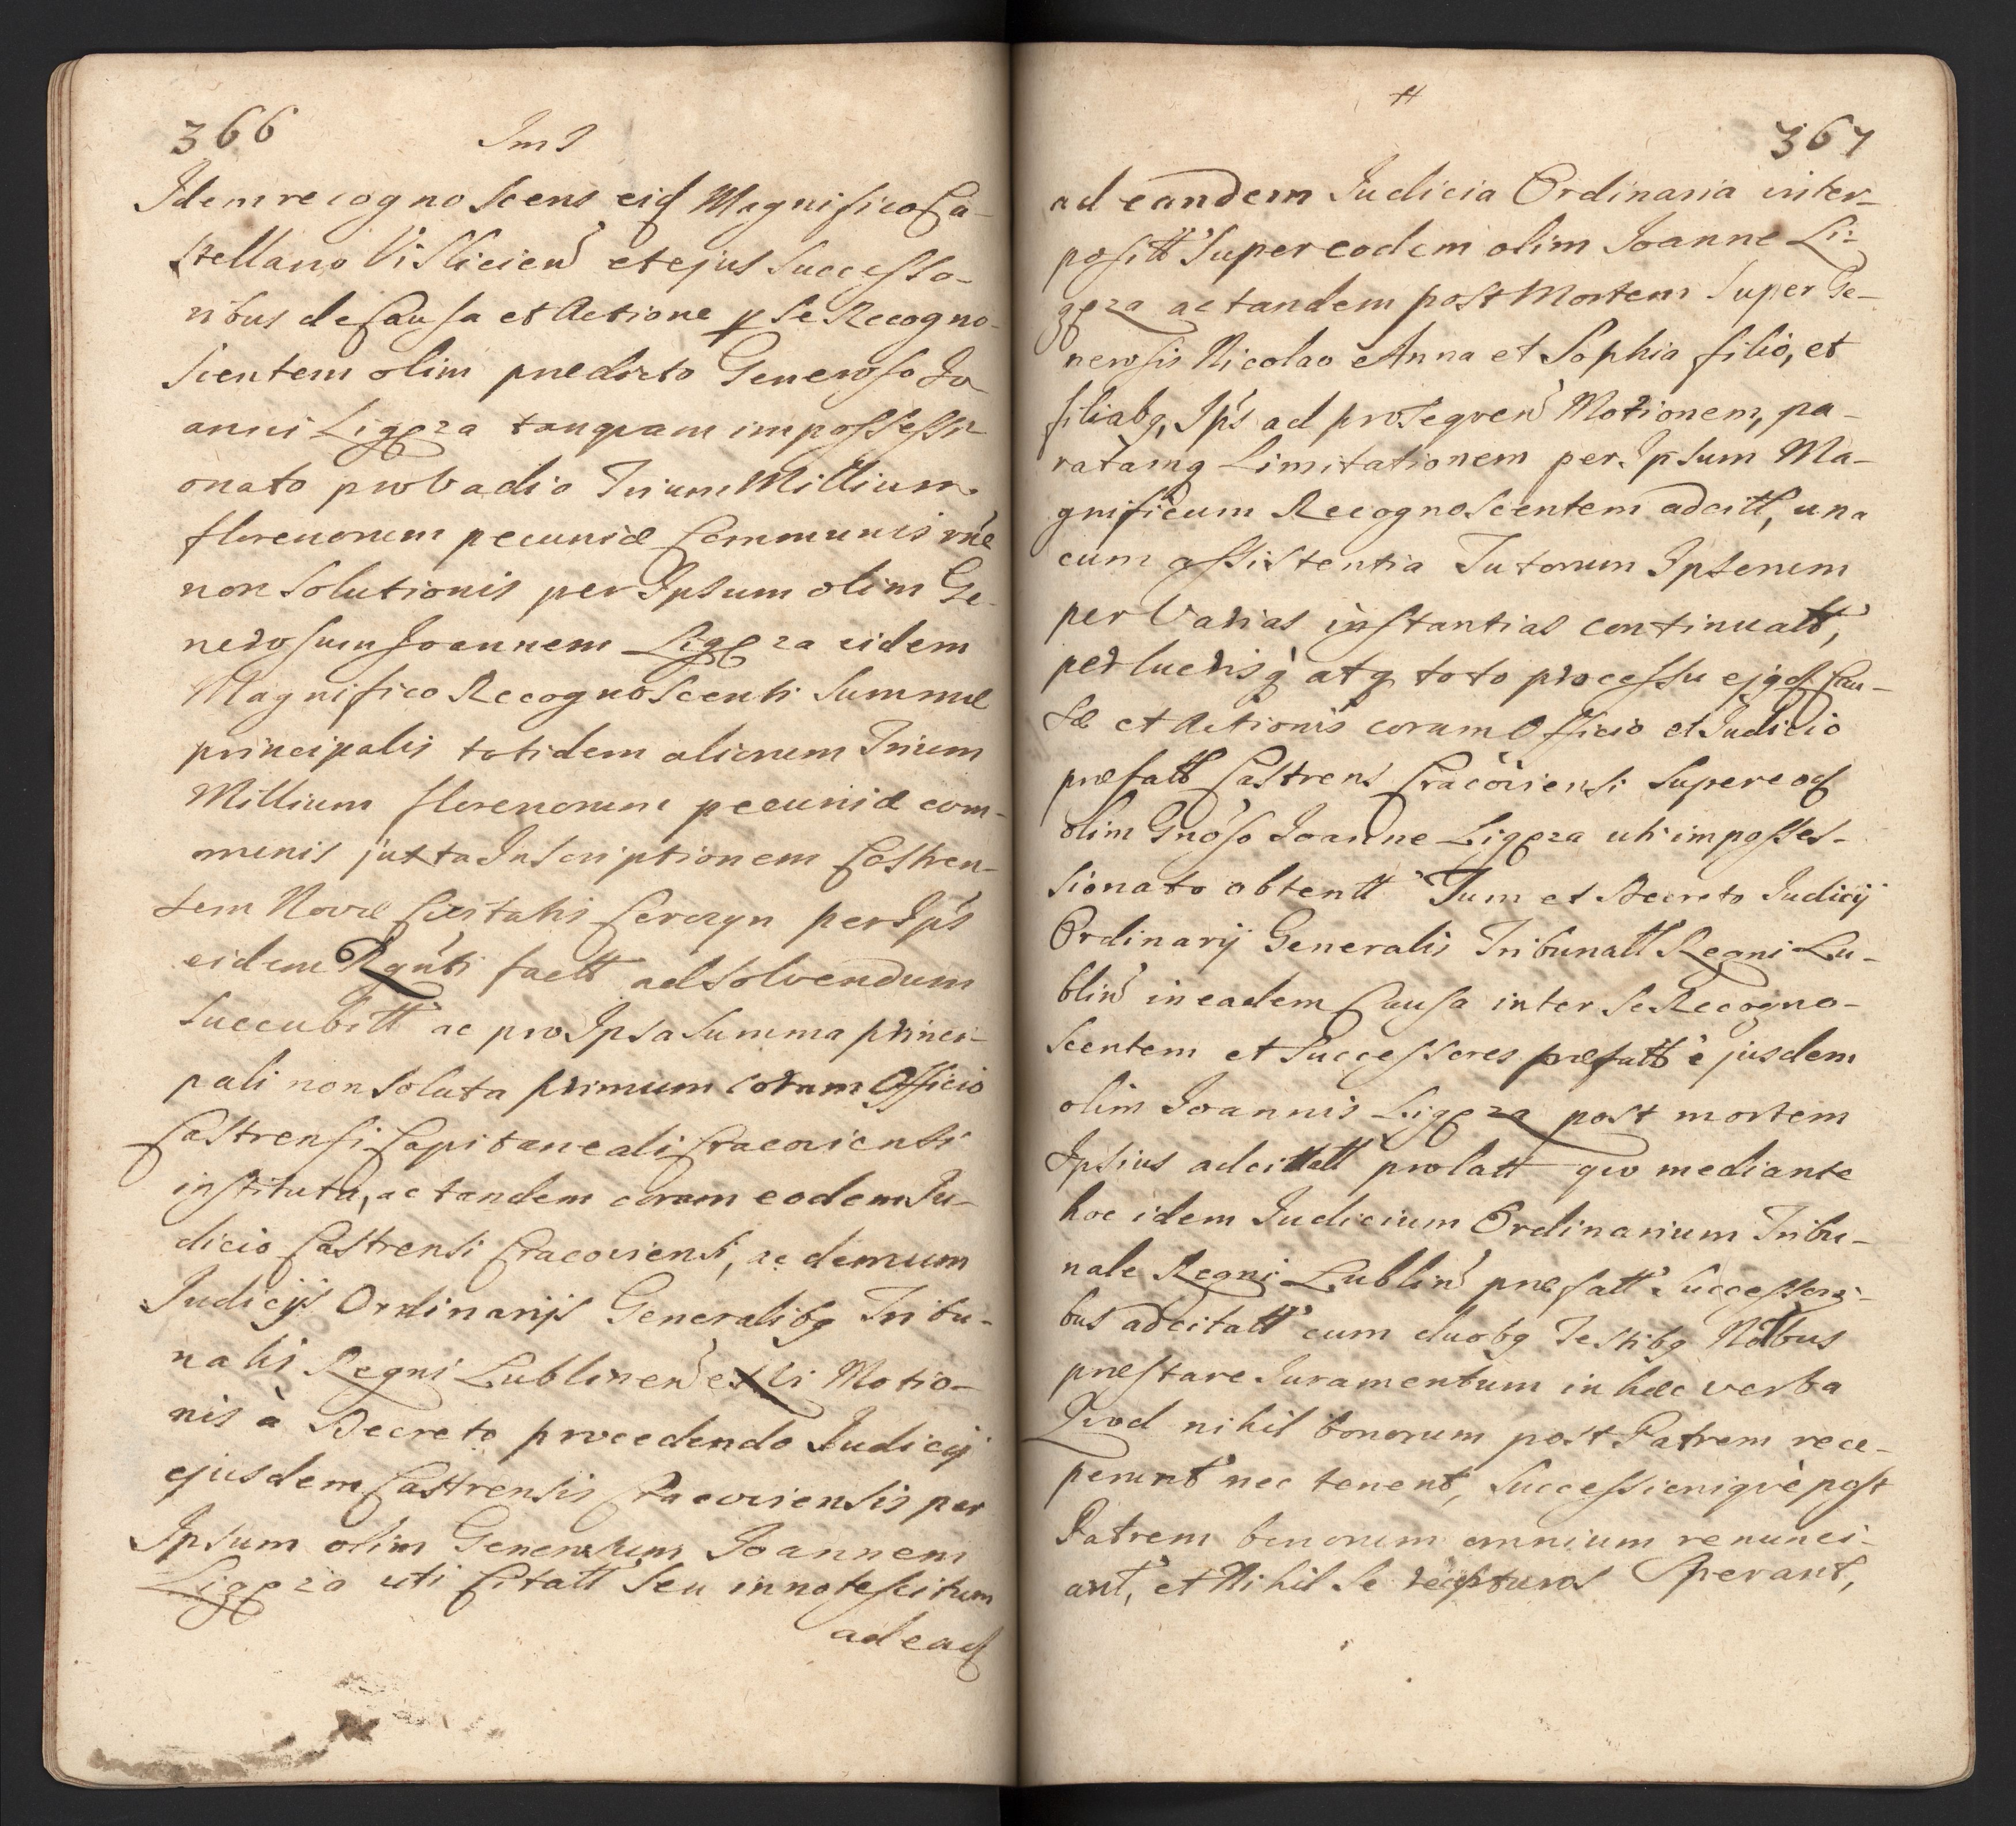 366
Idem recognoscens eid Magnifico Ca-
stellano Vislicien et ejus Successo-
ribus de Causa et Actione p se Recogno-
scientem olim prædicto Generoso Jo
anni Ligęza tanquam impossessi
onato pro vadio Trium Millium
florenorum pecuniæ Communis rne
non Solutionis per Ipsum olim Ge-
nerosum Joannem Ligęza eidem
Magnifico Recognoscenti Summæ
principalis totidem aliorum Trium
Millium florenorum pecuniæ com-
munis juxta Inscriptionem Castren-
sem Novæ Civitatis Corczyn per Ips
eidem Rgnti factt ad solvendum
succubitt ac pro Ipsa Summa princi-
pali non Soluta primum coram Officio
Castrensi Capitaneali Cracoviensi
instituta, ac tandem coram eodem Ju-
dicio Castrensi Cracoviensi, ac demum
Judicijs Ordinarijs Generalibq Tribu-
nalis Regni Lublinen ex Vi Motio-
nis à Decreto procedendo Judicij
ejusdem Castrensis Cracoviensis per
Ipsum olim Generosum Joannem
Ligęza uti Citatt seu innotescitum
ad ead
367
ad eandem Judicia Ordinaria inter-
positt Super eodem olim Joanne Li-
gęza ac tandem post Mortem Super Ge-
nerosis Nicolao Anna et Sophia filio, et
filiabq, Ips ad proseqven Motionem, pa-
ratamq Limitationem per Ipsum Ma-
gnificum Recognoscentem adcitt, una
cum assistentia Tutorum Ipsorum
per Varias instantias continuatt,
perlucrisq atq toto processu ejqd Cau-
sæ et Actionis coram Officio et Judicio
præfatt Castrens Cracoviensi Super eod
olim Gnoso Joanne Ligęza uti imposses-
sionato obtentt Tum et Decreto Judicij
Ordinarij Generalis Tribunall Regni Lu-
blin in eadem Causa inter se Recogno-
scentem et Successores præfatt ejusdem
olim Joannis Ligęza post mortem
Ipsius adcitatt prolatt qvo mediante
hoc idem Judicium Ordinarium Tribu-
nale Regni Lublin præfatt Successori-
bus adcitatt cum duobq Testibq Nobus
præstare Juramentum in hæc verba
Qvod nihil bonorum post Patrem rece-
perunt nec tenent, Successioniqvè post
Patrem bonorum omnium renunci-
ant, et Nihil se recepturos Sperant,